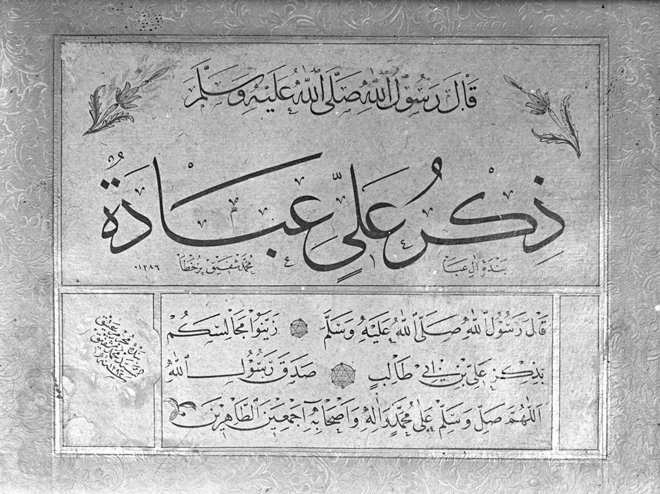 قَالَ رَسُولُ اللّٰهِ صَلَّى اللّٰهُ عَلَيْهِ وَسَلَّمَ
ذِكْرُ عَلِيٍّ عِبَادَةٌ
بندهٔ آل عبا
محمد شفيق پرخطا ١٢٨٦
قَالَ رَسُولُ اللّٰهِ صَلَّى اللّٰهُ عَلَيْهِ وَسَلَّمَ زَيِّنُوا مَجَالِسَكُمْ
بِذِكْرِ عَلِيِّ بْنِ أَبِي طَالِبٍ صَدَقَ رَسُولُ اللّٰهِ
اَللّٰهُمَّ صَلِّ وَسَلِّمْ عَلَى مُحَمَّدٍ وَاٰلِهِ وَاَصْحَابِهِ اَجْمَعِينَ الطَّاهِرِينَ